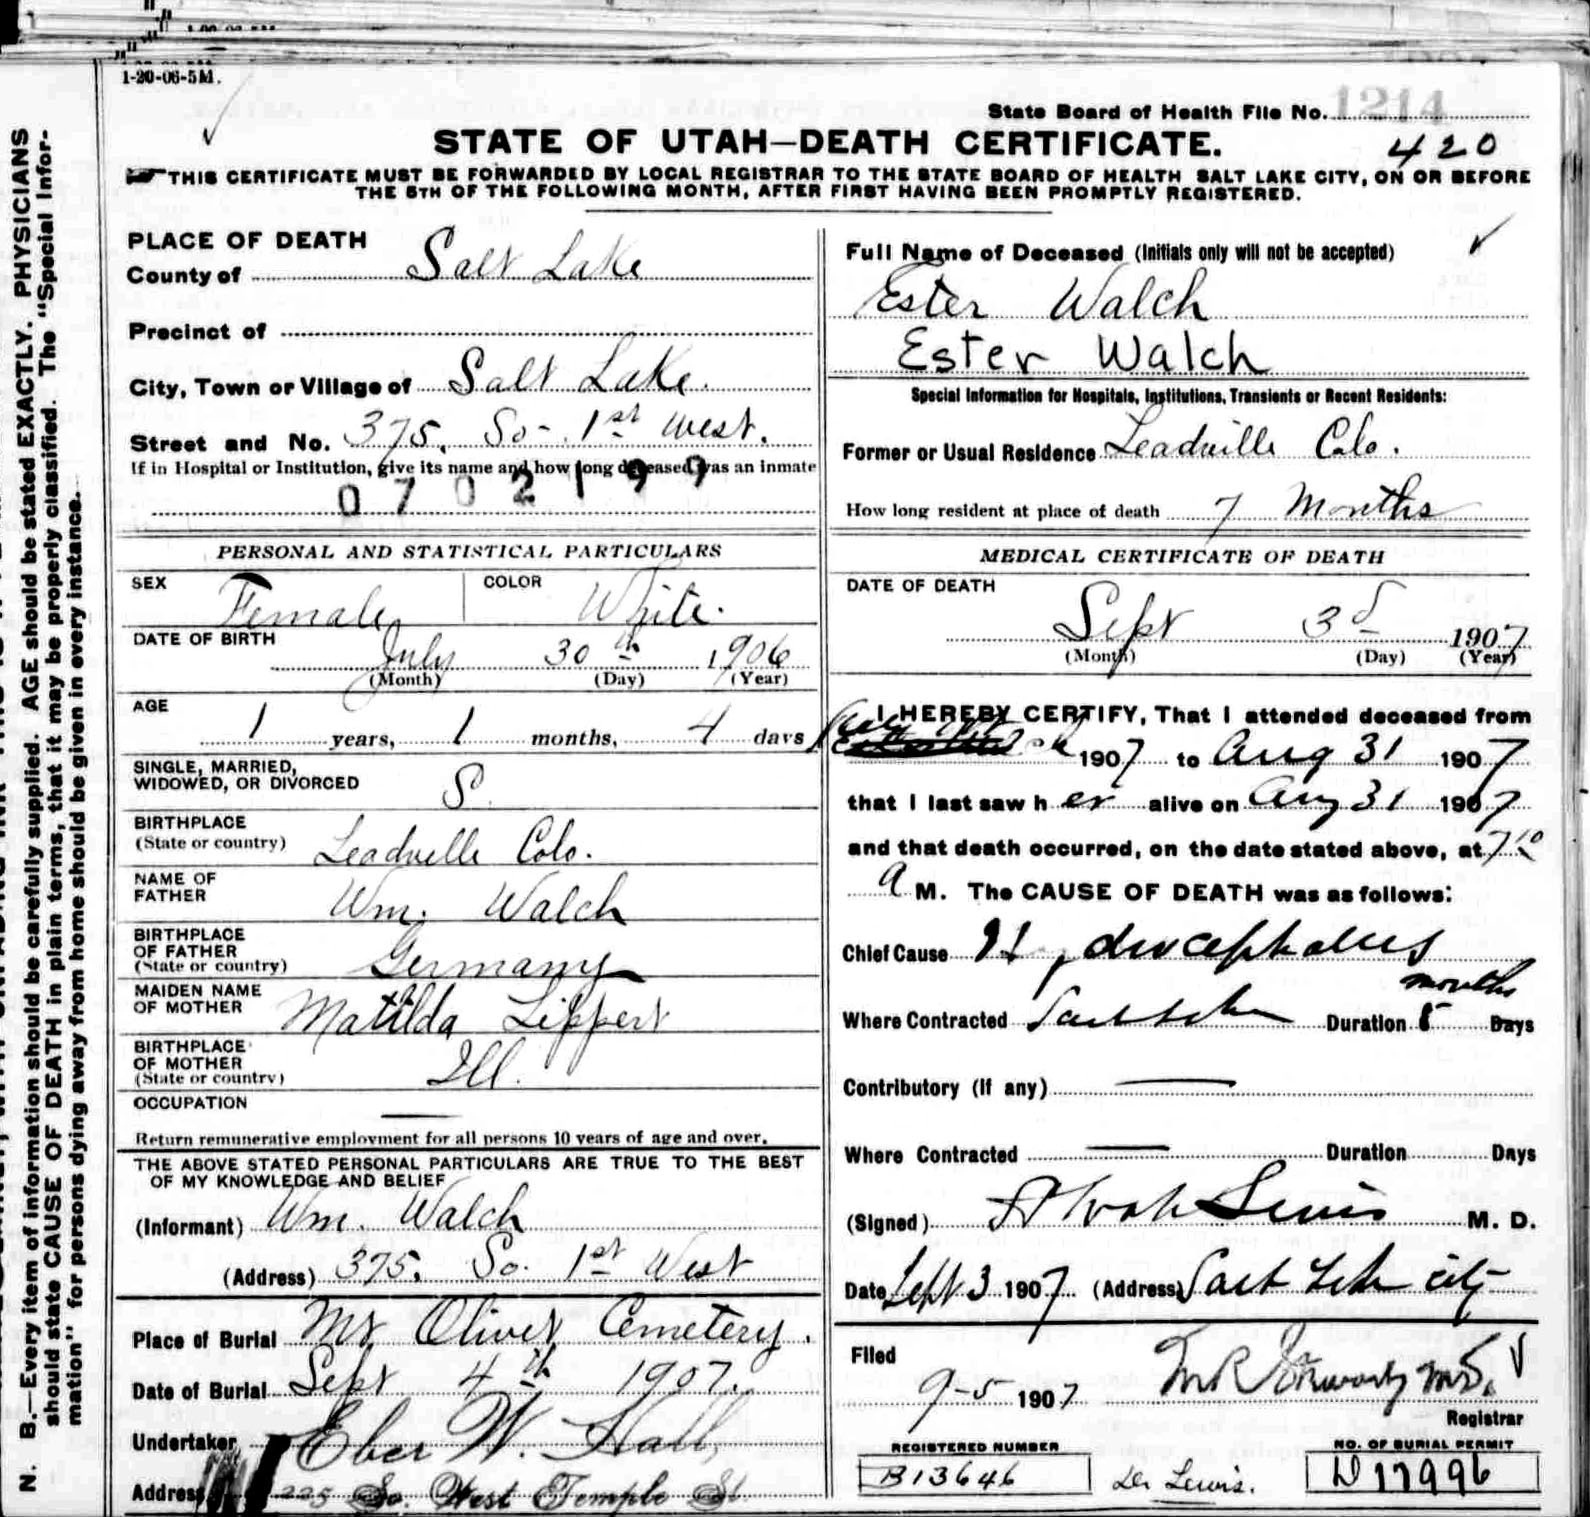 1-20-06-5M.
State Board of Health File No. 1214
STATE OF UTAH—DEATH CERTIFICATE.
420
THIS CERTIFICATE MUST BE FORWARDED BY LOCAL REGISTRAR TO THE STATE BOARD OF HEALTH SALT LAKE CITY, ON OR BEFORE
THE 5TH OF THE FOLLOWING MONTH, AFTER FIRST HAVING BEEN PROMPTLY REGISTERED.
N. B.—Every item of information should be carefully supplied. AGE should be stated EXACTLY. PHYSICIANS
should state CAUSE OF DEATH in plain terms, that it may be properly classified. The "Special Infor-
mation" for persons dying away from home should be given in every instance.
PLACE OF DEATH
County of Salt Lake
Precinct of
City, Town or Village of Salt Lake.
Street and No. 375. So. 1st West.
If in Hospital or Institution, give its name and how long deceased was an inmate
0702199
PERSONAL AND STATISTICAL PARTICULARS
SEX Female
COLOR White.
DATE OF BIRTH
July 30th 1906
(Month) (Day) (Year)
AGE
1 years, 1 months, 4 days
SINGLE, MARRIED,
WIDOWED, OR DIVORCED S
BIRTHPLACE
(State or country) Leadville Colo.
NAME OF
FATHER Wm. Walch
BIRTHPLACE
OF FATHER
(State or country) Germany
MAIDEN NAME
OF MOTHER Matilda Lippert
BIRTHPLACE
OF MOTHER
(State or country) Ill.
OCCUPATION —
Return remunerative employment for all persons 10 years of age and over.
THE ABOVE STATED PERSONAL PARTICULARS ARE TRUE TO THE BEST
OF MY KNOWLEDGE AND BELIEF
(Informant) Wm. Walch
(Address) 375. So. 1st West
Place of Burial Mt Olivet Cemetery.
Date of Burial Sept 4th 1907.
Undertaker Eber W. Hall,
Address 225 So. West Temple St.
Full Name of Deceased (Initials only will not be accepted)
Ester Walch
Ester Walch
Special Information for Hospitals, Institutions, Transients or Recent Residents:
Former or Usual Residence Leadville Colo.
How long resident at place of death 7 Months
MEDICAL CERTIFICATE OF DEATH
DATE OF DEATH
Sept 3d 1907
(Month) (Day) (Year)
I HEREBY CERTIFY, That I attended deceased from
1907 to Aug 31 1907
that I last saw her alive on Aug 31 1907
and that death occurred, on the date stated above, at 7:10
a M. The CAUSE OF DEATH was as follows:
Chief Cause Hydrocephalus
months
Where Contracted Salt Lake Duration 5 Days
Contributory (if any) —
Where Contracted — Duration Days
(Signed) Alvah Lewis M. D.
Date Sept 3 1907 (Address) Salt Lake city
Filed
9-5 1907
Registrar
REGISTERED NUMBER
B13646
Dr Lewis.
NO. OF BURIAL PERMIT
D17996